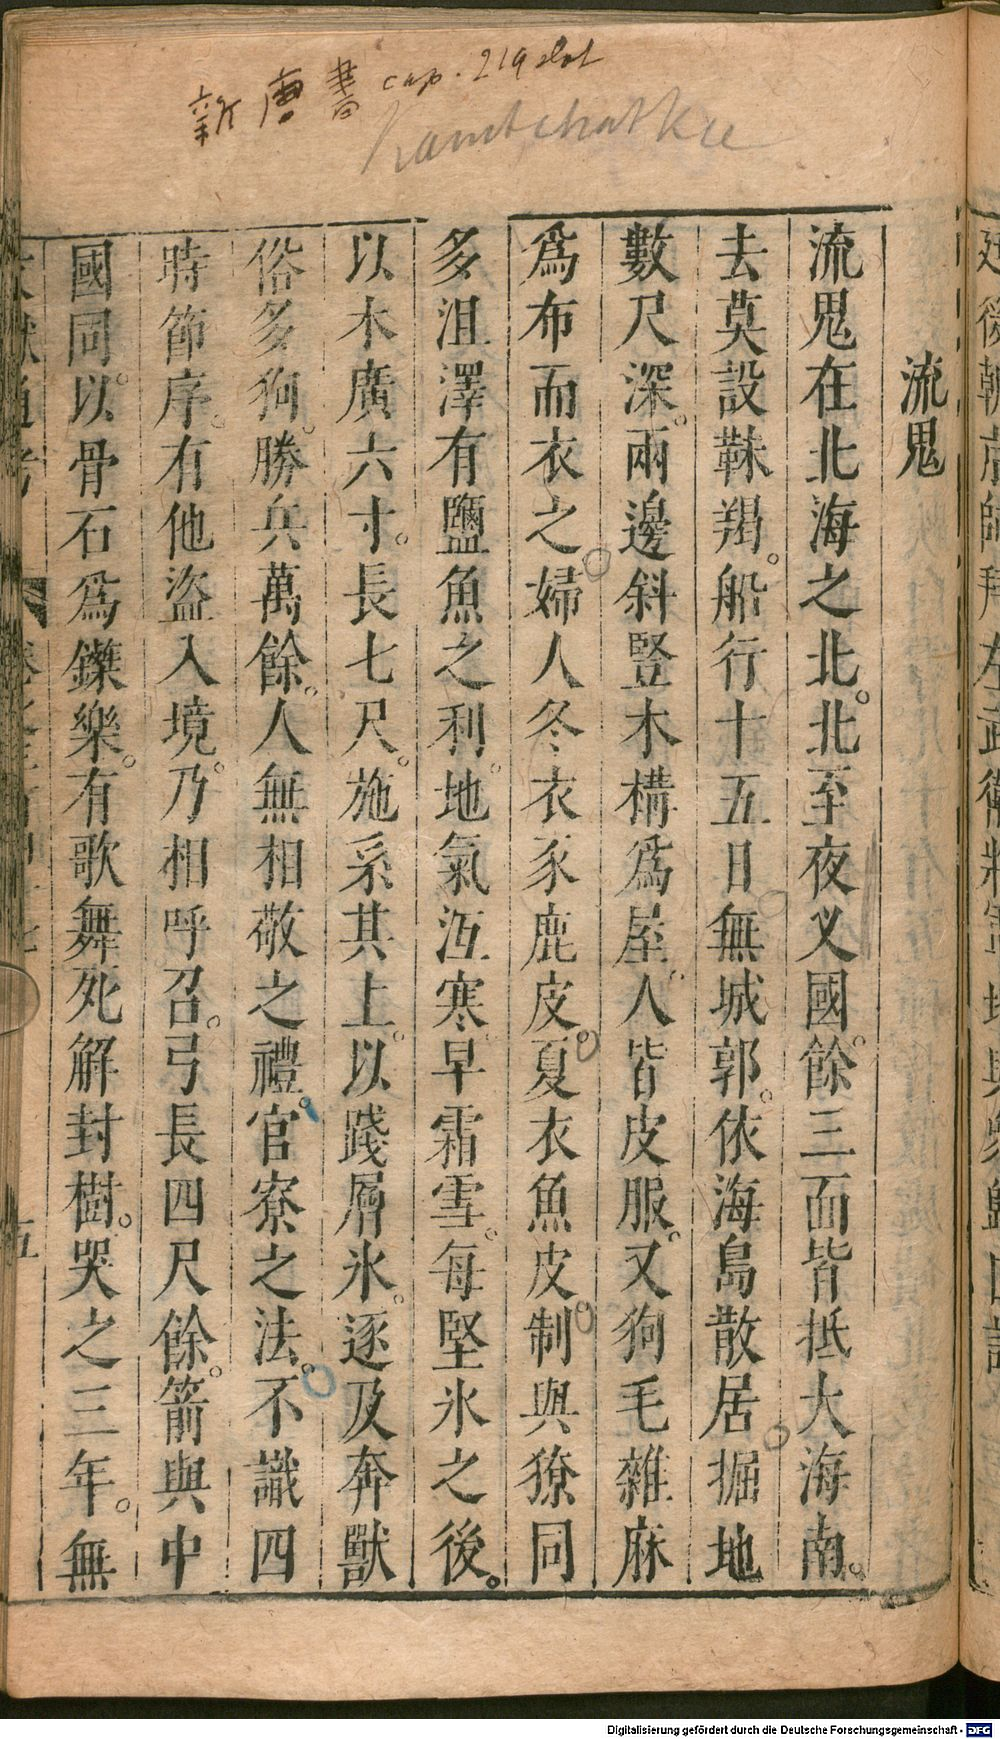 新唐書 cap. 219
Kamtchatka
流鬼
流鬼在北海之北。北至夜义國。餘三面皆抵大海南。
去莫設靺羯。船行十五日無城郭。依海島散居掘地
數尺深。兩邊斜豎木構爲屋。人皆皮服。又狗毛雜麻
爲布而衣之。婦人冬衣豕鹿皮。夏衣魚皮制與獠同
多沮澤有鹽魚之利。地氣沍寒。早霜雪。每堅氷之後。
以木廣六寸。長七尺。施系其上。以踐層氷。逐及奔獸
俗多狗。勝兵萬餘。人無相敬之禮。官寮之法。不識四
時節序。有他盜入境。乃相呼召。弓長四尺餘。箭與中
國同。以骨石爲鏃樂。有歌舞死解封樹。哭之三年。無
五
Digitalisierung gefördert durch die Deutsche Forschungsgemeinschaft - DFG